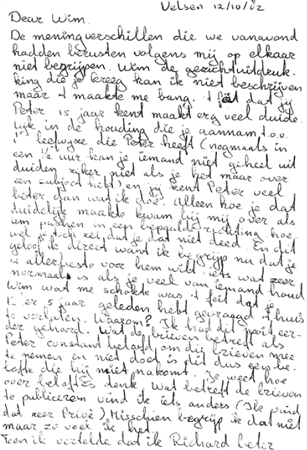 Velsen 12/10/02
Dear Wim.
De meningverschillen die we vanavond
hadden berusten volgens mij op elkaar
niet begrijpen. Wim de gezichtuitdruk-
king die je kreeg kan ik niet beschrijven
maar 't maakte me bang. 't feit dat jij
Peter 15 jaar kent maakt erg veel duide
lijk in de houding die je aannam t.o.v.
'n leefwijze die Peter heeft (nogmaals in
een ½ uur kan je iemand niet geheel uit
duiden zeker niet als je het maar over
een subject hebt) en jij kent Peter veel
beter dan wat ik doe. Alleen hoe je dat
duidelijk maakte kwam bij mij over als
in een bepaalde richting hoe-
wel je zei dat je dat niet deed. En dit
geloof ik direct want ik begrijp nu dat je
't allerbeste voor hem wilt iets wat zeer
normaal is als je veel van iemand houd
Wim wat me schokte was 't feit dat
er 5 jaar geleden hebt gevraagd 't huis
te verlaten. Waarom? Ik had dit nooit eer-
der gehoord. Wat de brieven betreft als
Peter constant belooft om de brieven mee
te nemen en niet doet is dit dus een be-
lofte die hij niet nakomt. Je weet hoe
over beloftes denk. Wat betreft de brieven
te publiceren vind ik iets anders (Ik vind
dat zeer Privé) Misschien begrijp ik dat niet
maar zo voel ik het
Toen ik vertelde dat ik Richard beter